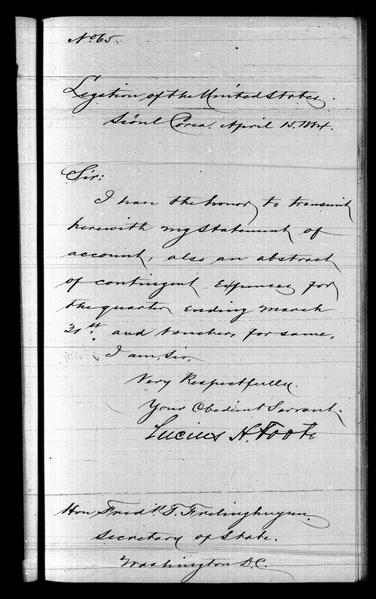 No 65.
Legation of the United States.
Séoul Corea. April 15. 1884.
Sir:
I have the honor to transmit
herewith my statement of
account, also an abstract
of contingent Expenses for
the quarter ending March
31st. and voucher, for same,
I am, Sir,
Very Respectfully.
Your Obedient Servant.
Lucius H. Foote
Hon. Fredk. T. Frelinghuysen.
Secretary of State.
Washington D.C.